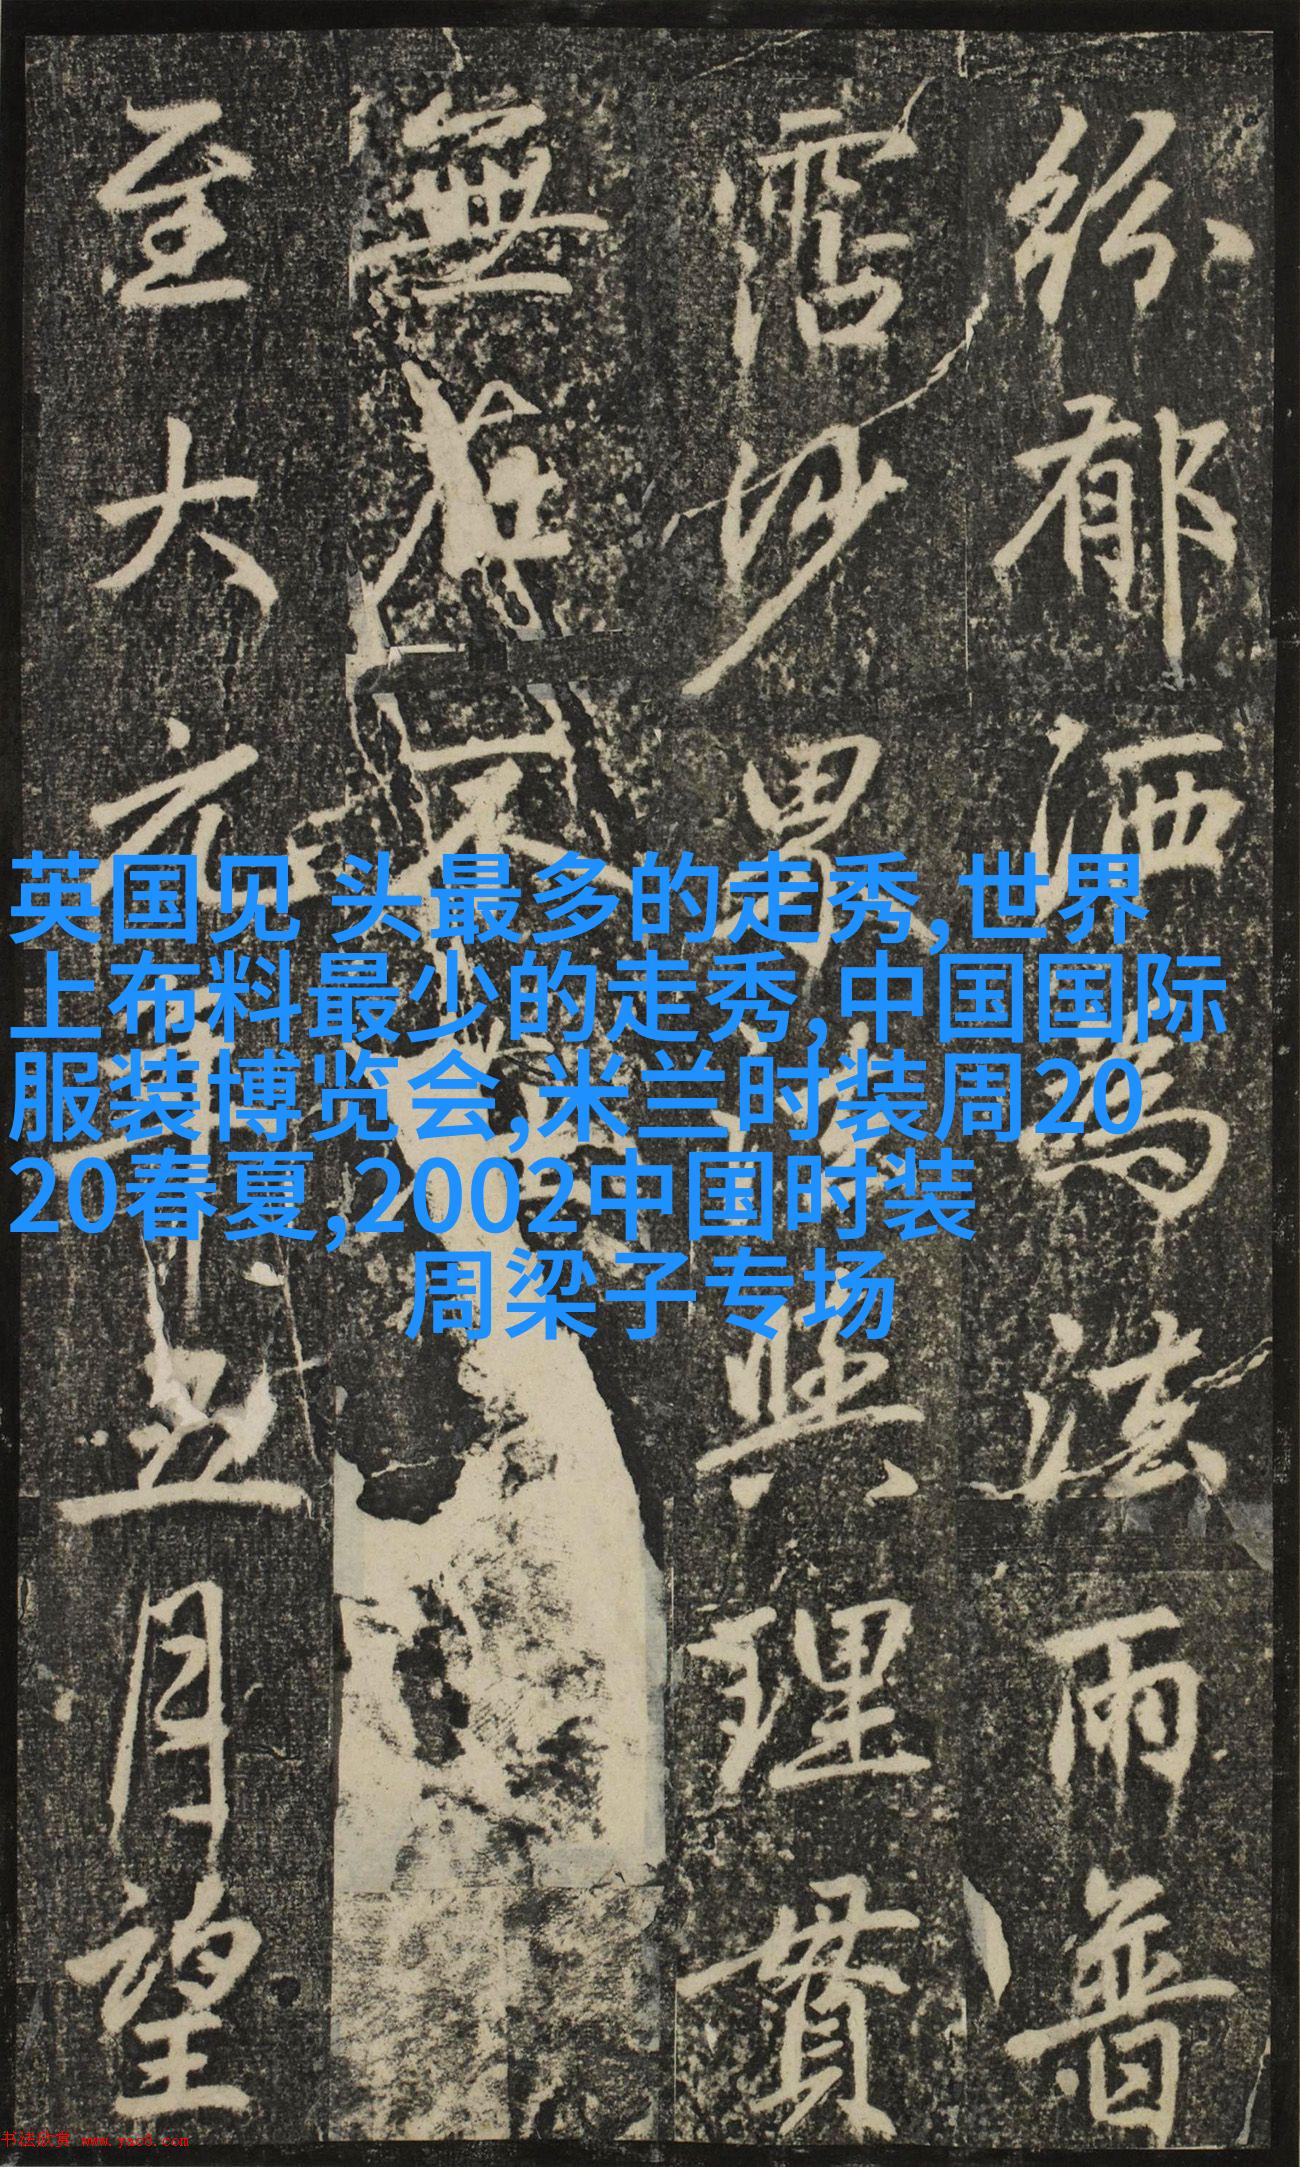 紛郁洒為法雨普
霑沙界理
無在不
至大元年五月望
英国见 头最多的走秀,世界
上布料最少的走秀,中国国际
服装博览会,米兰时装周20
20春夏,2002中国时装
周梁子专场
书法欣赏 www.yac8.com